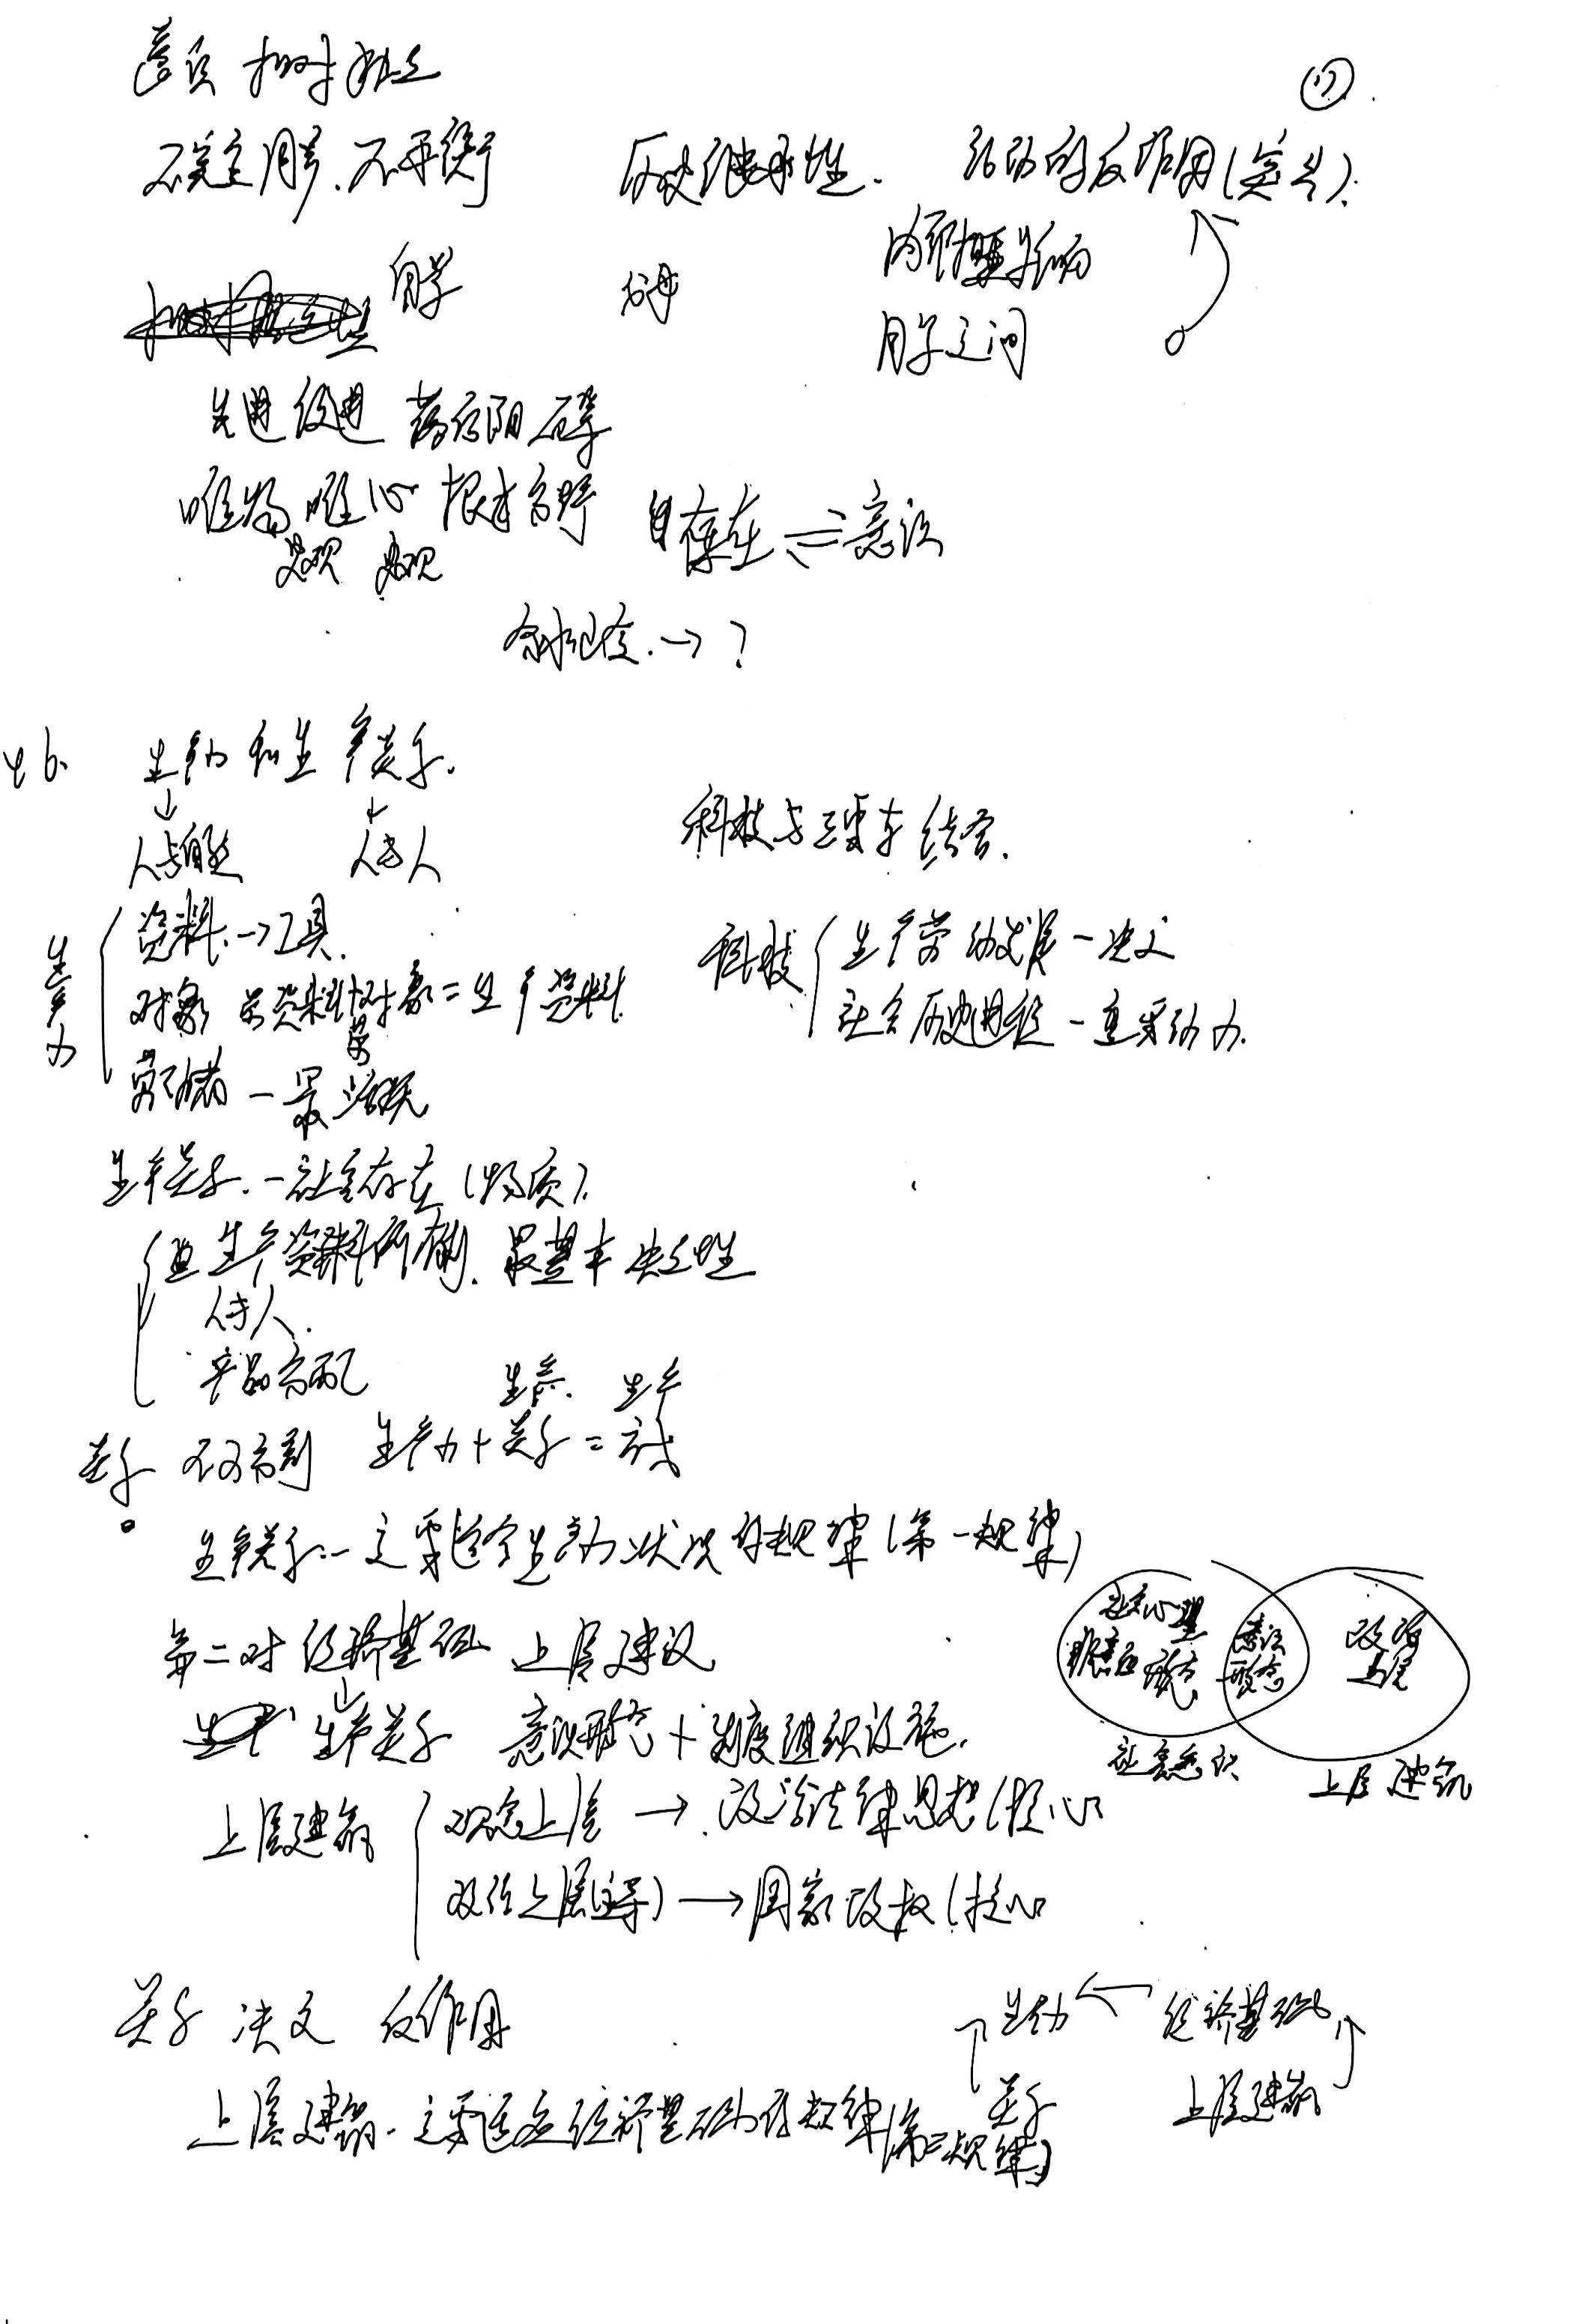 意识 相对独立
(17).
不完全同步、不平衡 历史继承性. 能动的反作用(突出).
内部相互影响
自学
同学之间
先进 促进 落后阻碍
唯物 唯心 根本分野 存在 ⇌ 意识
史观 史观
→ ?
生产力 和 生产关系.
↓ ↓
人与自然 人与人
科技与三要素结合.
生产力
资料 → 工具.
对象 劳资料+劳对象 = 生产资料.
劳动者 — 最活跃
科技
生产劳动发展 — 决定
社会历史进程 — 重要动力.
生产关系. — 社会存在 (物质).
生产资料所有制. 最基本 决定性
人与人.
产品分配
生产. 生产
关系 不可分割 生产力 + 关系 = 方式
生产关系一定要适合生产力状况的规律 (第一规律)
第二对 经济基础 上层建议
↓
生产关系 意识形态 + 制度组织设施.
社会心理
非意识形态
意识形态
政治上层
社会意识
上层建筑
上层建筑
观念上层 → 政治法律思想 (核心
政治上层(主导) → 国家政权 (核心
关系 决定 反作用
生产力 ← 经济基础
↑ ↑
关系 上层建筑
上层建筑一定要适应经济基础的规律(第二规律)